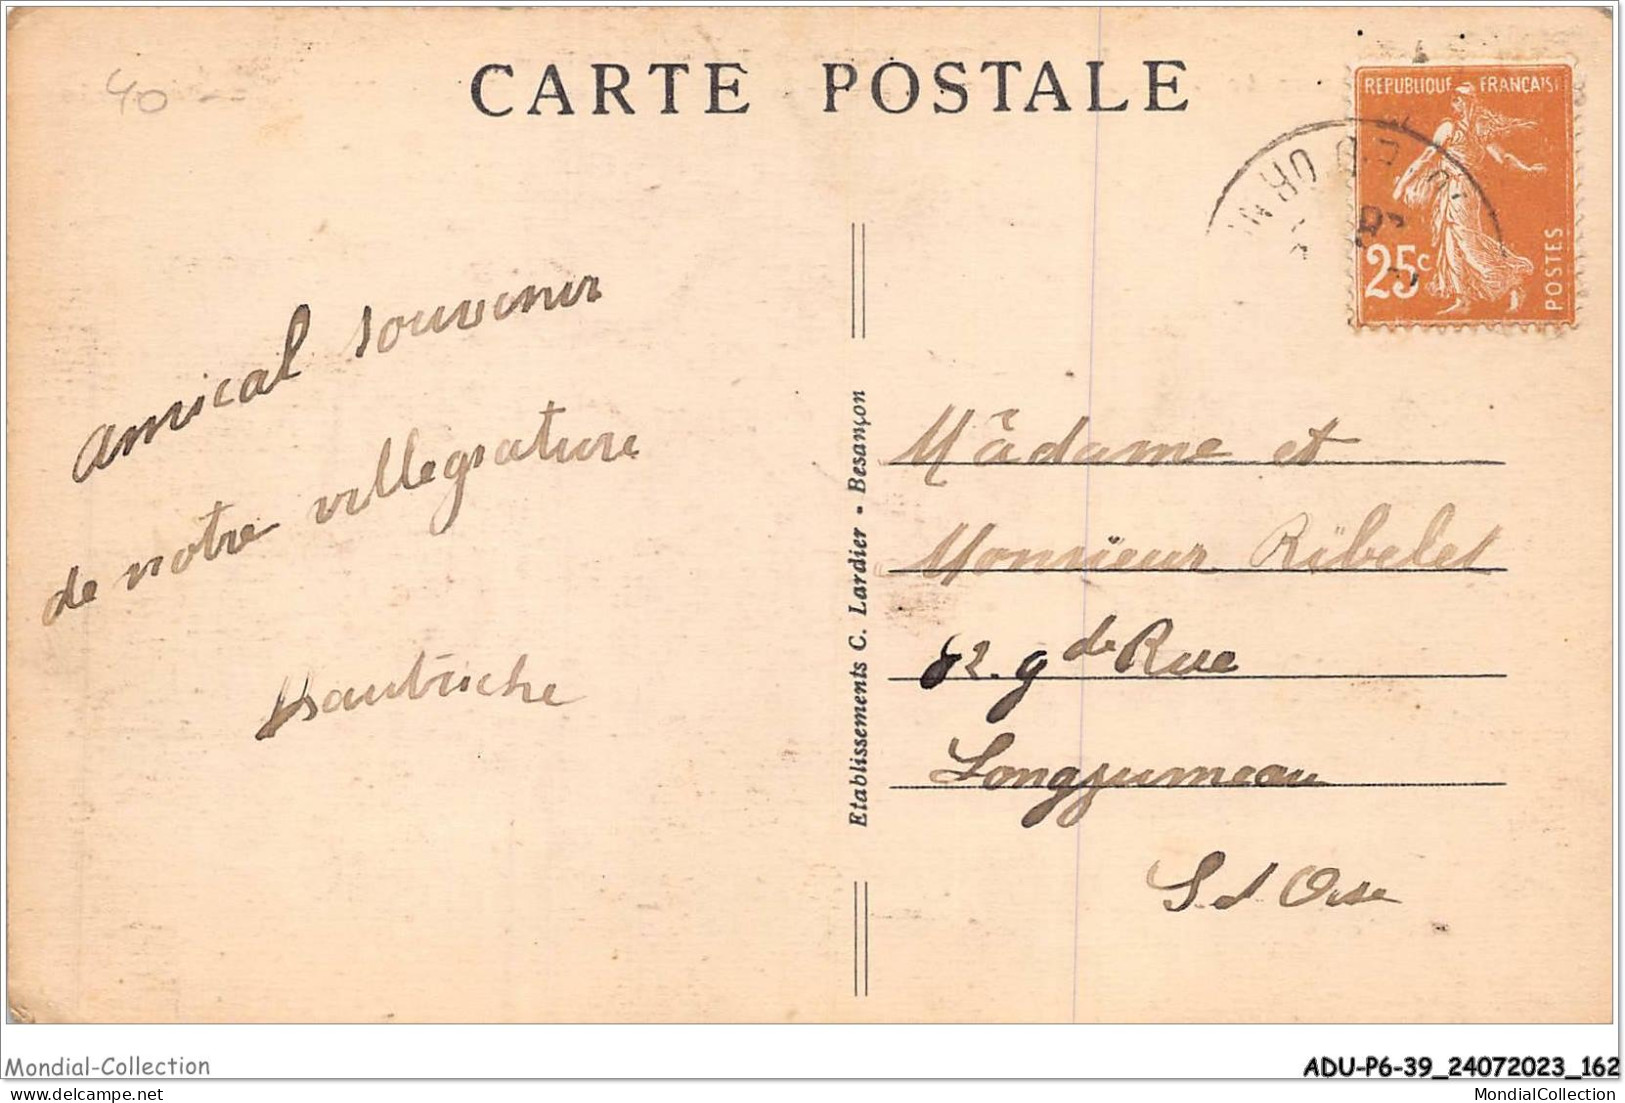 40
CARTE POSTALE
REPUBLIQUE FRANÇAISE
25c
POSTES
amical souvenir
de notre villegiature
Etablissements C. Lardier - Besançon
Mâdame et
Monsieur Ribelet
82. gde Rue
Longjumeau
S et Oise
Mondial-Collection
ADU-P6-39_24072023_162
delcampe.net
MondialCollection